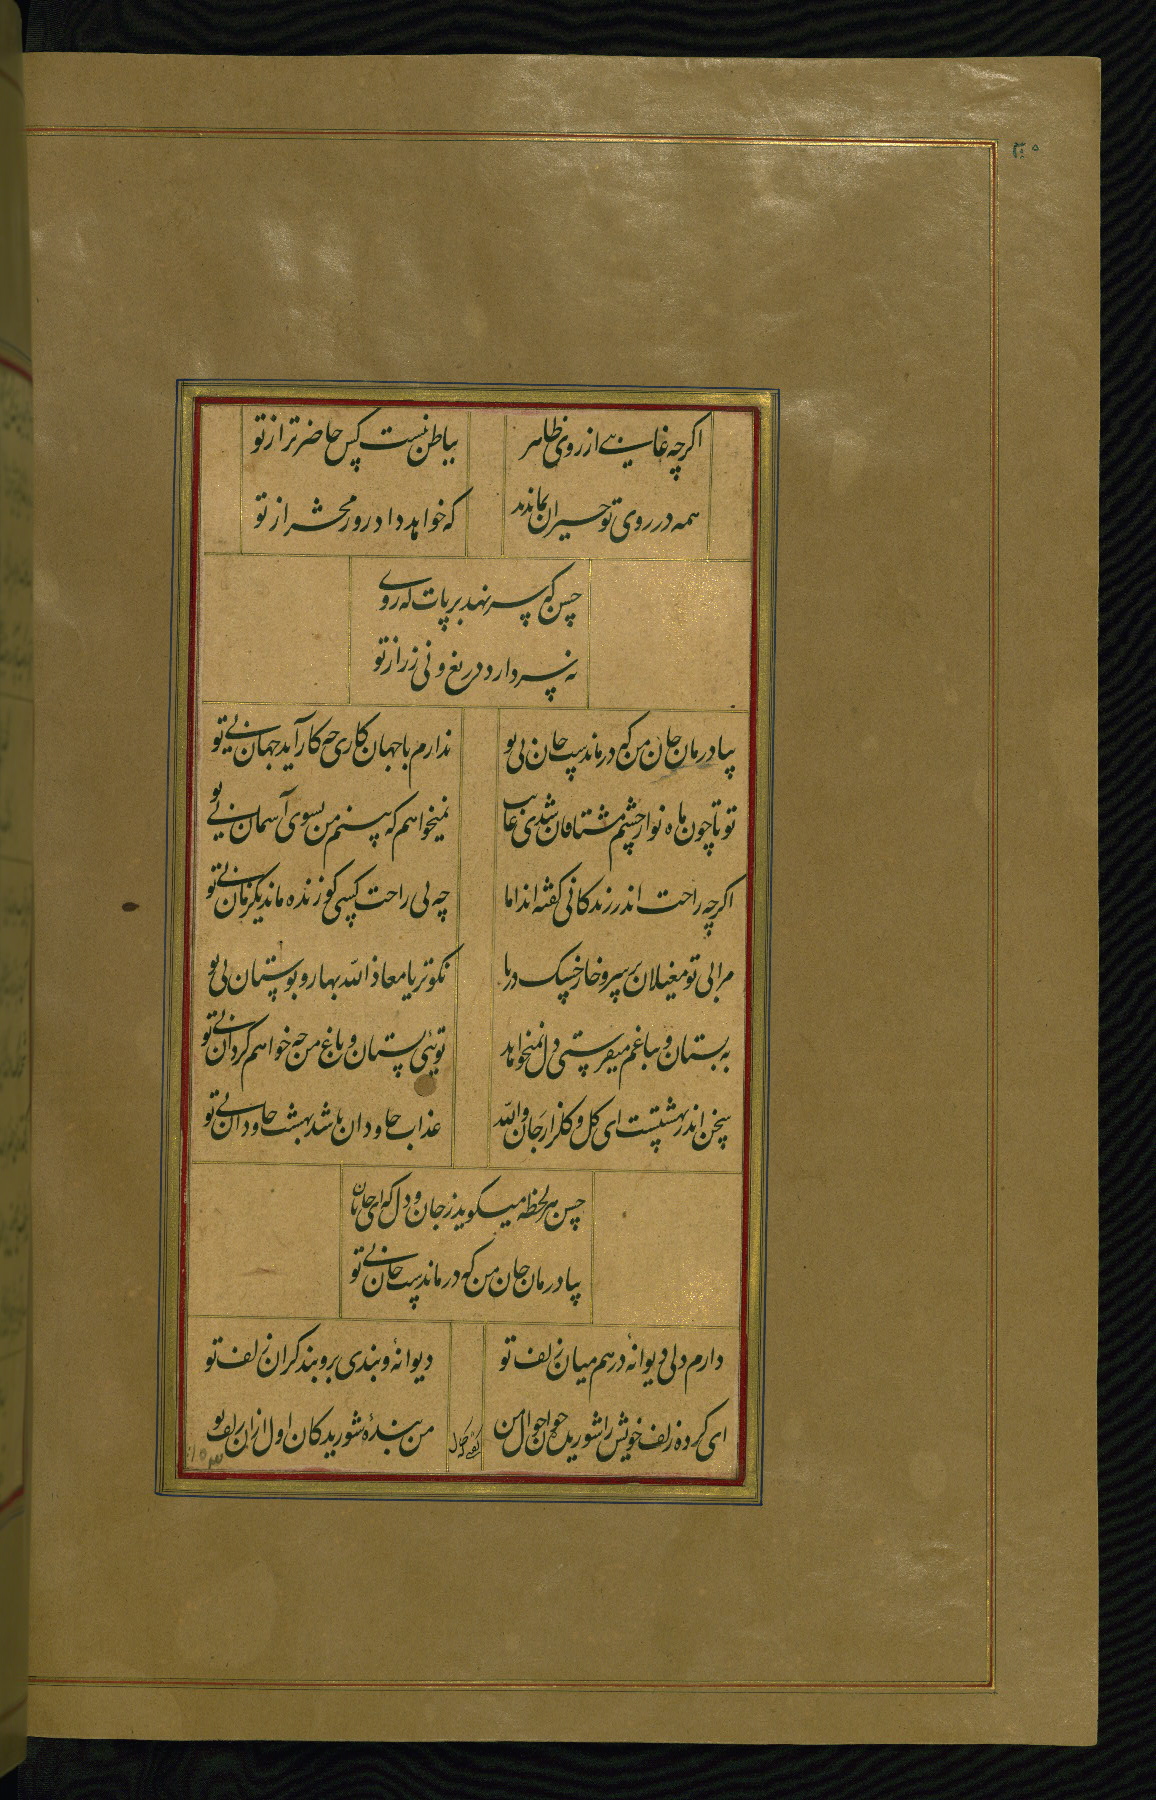 ۳۰۵
اکرچه غایبی از روی ظاهر بباطن نیست کس حاضرتر از تو
همه در روی تو حیران بماندند که خواهد داد روز محشر از تو
حسن که سر نهد بر پات که روی
نه سر دارد دریغ و نی زر از تو
بیا درمان جان من که درماندست جان بی تو ندارم با جهان کاری چه کار آید جهان بی تو
تو تا چون ماه نو از چشم مشتاقان شدی غایب نمیخواهم که بینم من بسوی آسمان بی تو
اکرچه راحت اندر زندکانی کفته اند اما چه بی راحت کسی کو زنده ماند یکزمان بی تو
مرا بی تو مغیلان بر سر و خار خسک در پا نکوتر یا معاذ الله بهار و بوستان بی تو
به بستان و بباغم میفرستی دل نمیخواهد توئی بستان و باغ من چه خواهم کرد آن بی تو
سخن اندر بهشتست ای کل و کلزار جان والله عذاب جاودان باشد بهشت جاودان بی تو
حسن هر لحظه میکوید ز جان و دل که ای جانان
بیا درمان جان من که درماندست جان بی تو
دارم دلی دیوانهٔ درهم میان زلف تو دیوانهٔ و بندی برو بند کران زلف تو
ای کرده زلف خویش را شوریده چون احوال من من بندهٔ شوریدکان اول ازان زلف تو